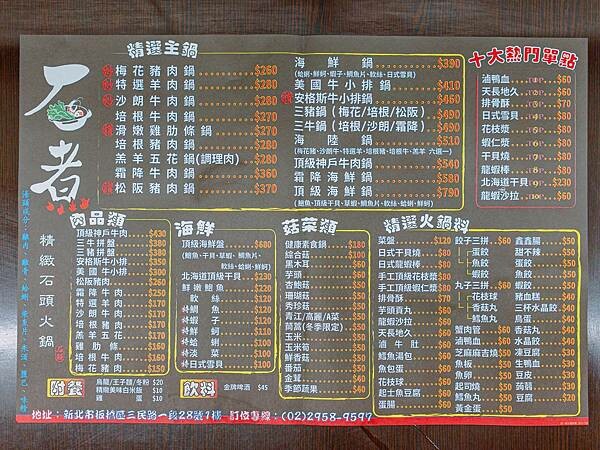 石者
精緻石頭火鍋
精選主鍋
梅花豬肉鍋 $260
特選羊肉鍋 $280
沙朗牛肉鍋 $280
培根牛肉鍋 $280
滑嫩雞肋條鍋 $270
培根豬肉鍋 $280
羔羊五花鍋(調理肉) $280
霜降牛肉鍋 $360
松阪豬肉鍋 $370
海鮮鍋 $390
美國牛小排鍋 $410
安格斯牛小排鍋 $460
三豬鍋(梅花/培根/松阪) $490
三牛鍋(培根/沙朗/霜降) $490
海陸鍋 $510
頂級神戶牛肉鍋 $540
霜降海鮮鍋 $580
頂級海鮮鍋 $790
十大熱門單點
滷鴨血 $60
天長地久 $60
排骨酥 $70
日式雪貝 $60
花枝漿 $80
蝦仁漿 $80
干貝燒 $60
龍蝦棒 $60
北海道干貝 $230
龍蝦沙拉 $60
肉品類
頂級神戶牛肉 $430
三牛拼盤 $380
三豬拼盤 $380
安格斯牛小排 $350
美國牛小排 $300
松阪豬肉 $260
霜降牛肉 $250
特選羊肉 $170
沙朗牛肉 $170
培根豬肉 $170
羔羊五花 $170
雞肋條 $160
培根牛肉 $160
梅花豬肉 $150
海鮮
頂級海鮮盤 $680
北海道頂級干貝 $230
鮮嫩鮑魚 $220
菇菜類
健康素食鍋 $280
綜合菇 $100
黑木耳 $60
芋頭 $60
杏鮑菇 $50
珊瑚菇 $50
秀珍菇 $50
青江/高麗/A菜 $50
茼蒿(冬季限定) $50
玉米 $50
玉米筍 $50
鮮香菇 $50
番茄 $50
金茸 $40
季節蔬果 $40
精選火鍋料
菜盤 $120
日式干貝燒 $80
日式龍蝦棒 $80
手工頂級花枝漿 $80
手工頂級蝦仁漿 $80
排骨酥 $70
芋頭貢丸 $60
龍蝦沙拉 $60
天長地久 $60
滷牛肚 $60
鱈魚湯包 $60
魚包蛋 $60
花枝球 $60
起士魚豆腐 $60
蛋腸 $60
餃子三拼 $60
蛋餃 $50
蝦餃 $50
魚餃 $50
丸子三拼 $60
花枝球 $60
香菇丸 $50
鱈魚丸 $50
蟹肉管 $60
芝麻麻吉燒 $50
魚板 $50
魚卵 $50
起司燒 $50
黃金蛋 $50
鑫鑫腸 $50
甜不辣 $50
豬血糕 $40
三杯水晶餃 $40
香菇丸 $40
水晶餃 $40
凍豆腐 $30
生鴨血 $30
豆皮 $30
蒟蒻 $30
豆腐 $20
附餐
烏龍/王子麵/冬粉 $20
精緻美味白米飯 $10
雞蛋 $10
飲料
金牌啤酒 $45
地址：新北市板橋區三民路一段28號1樓 訂位專線：(02)2958-9597